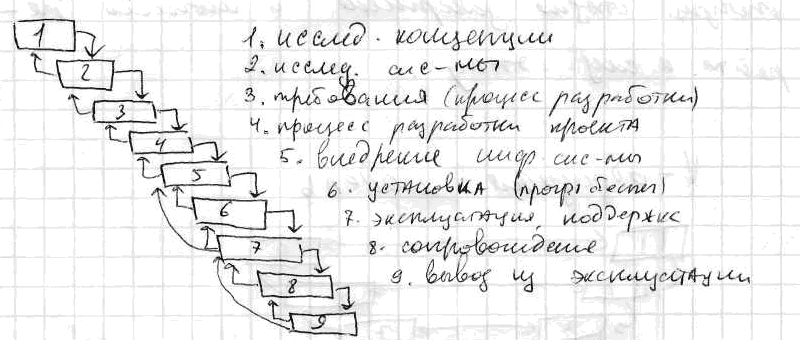 1. исслед. концепции
2. исслед. сис-мы
3. требования (процесс разработки)
4. процесс разработки проекта
5. внедрение инф. сис-мы
6. установка (прогр. обеспеч)
7. эксплуатация, поддержка
8. сопровождение
9. вывод из эксплуатации
1
2
3
4
5
6
7
8
9